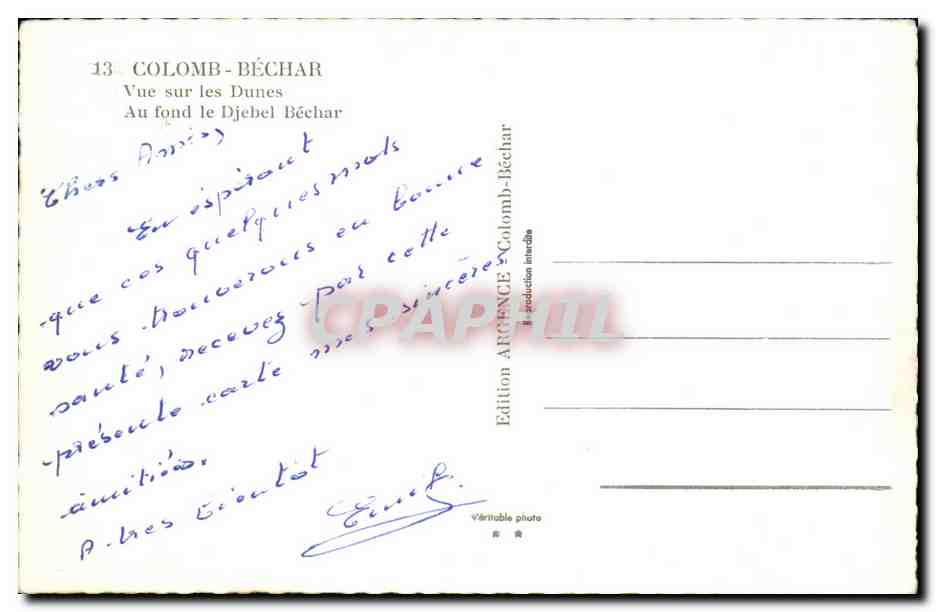 13 - COLOMB-BÉCHAR
Vue sur les Dunes
Au fond le Djebel Béchar
Chers Amis,
En espérant
que ces quelques mots
vous trouverons en bonne
santé, recevez par cette
présente carte mes sincères
amitiés.
A tres bientôt
Edition ARGENCE - Colomb-Béchar
Reproduction interdite
Véritable photo
CPAPHIL